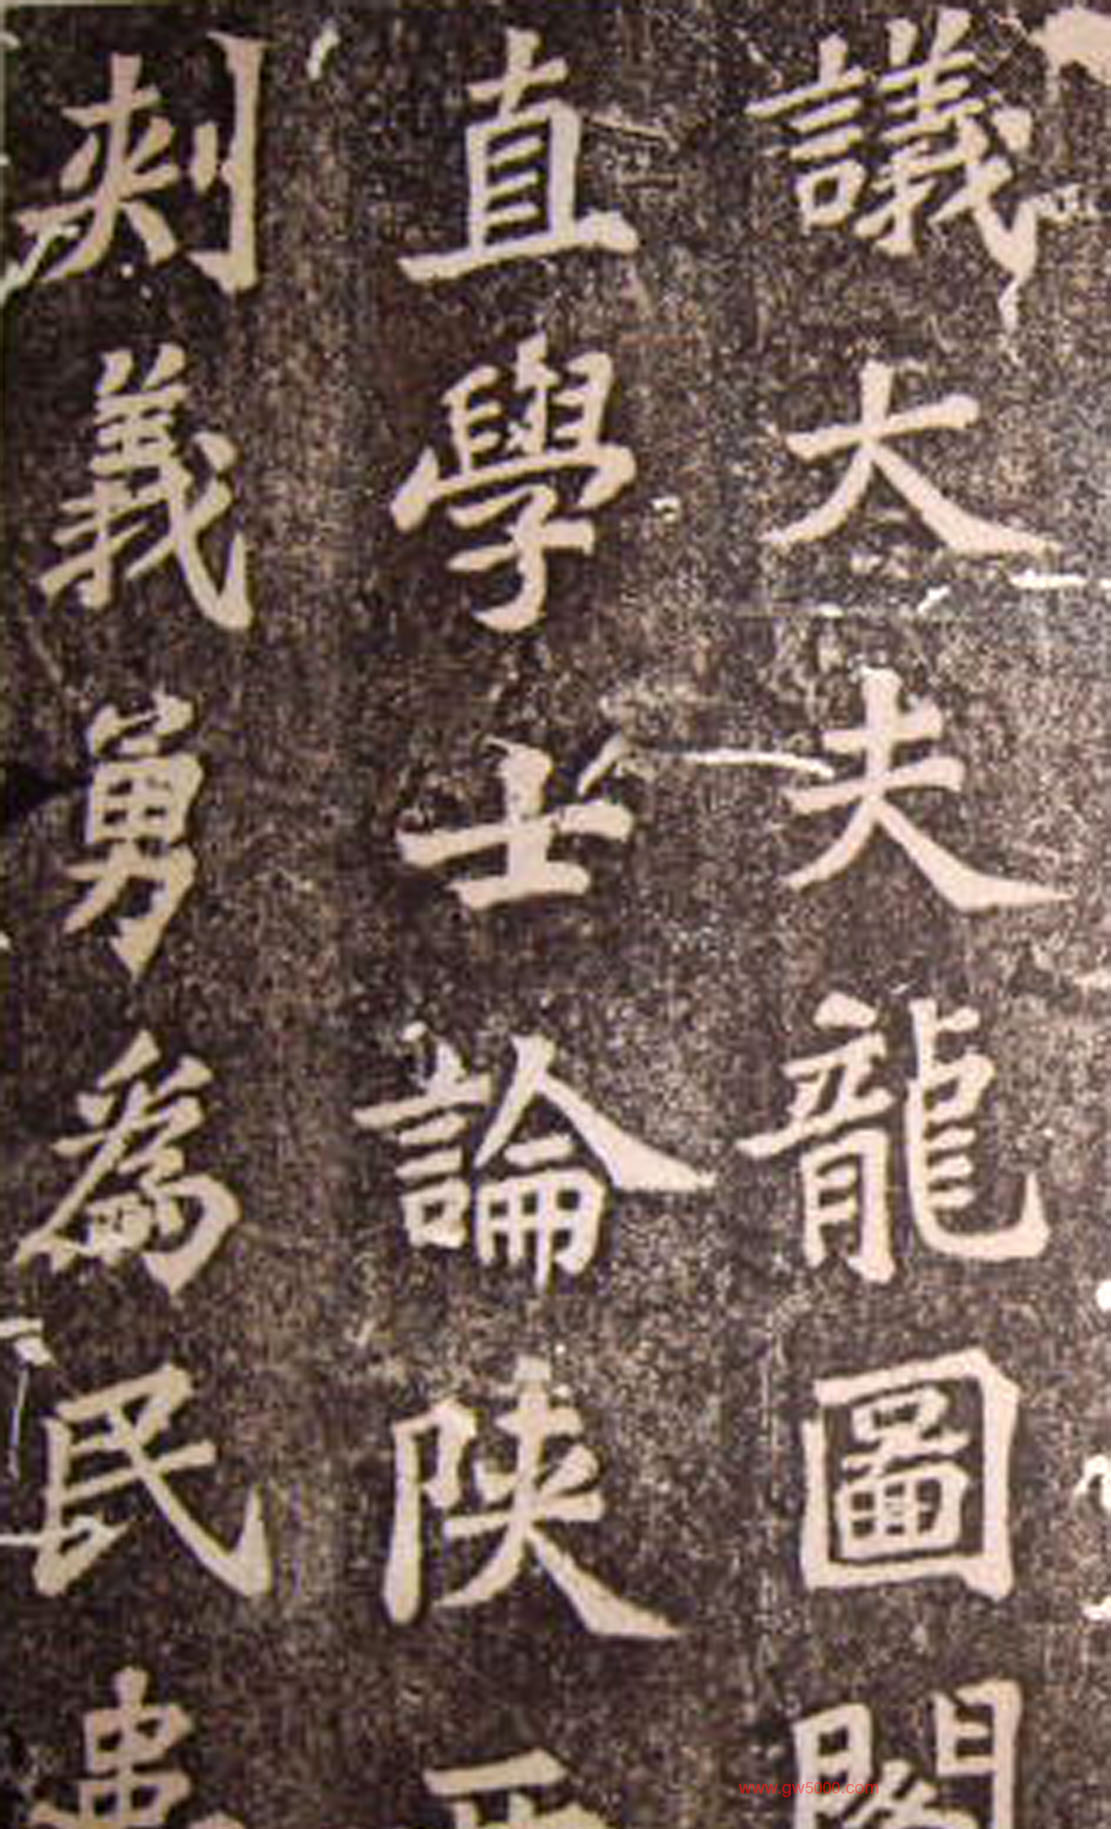 議大夫龍圖閣
直學士論陝西
刺義勇為民患
www.gw5000.com